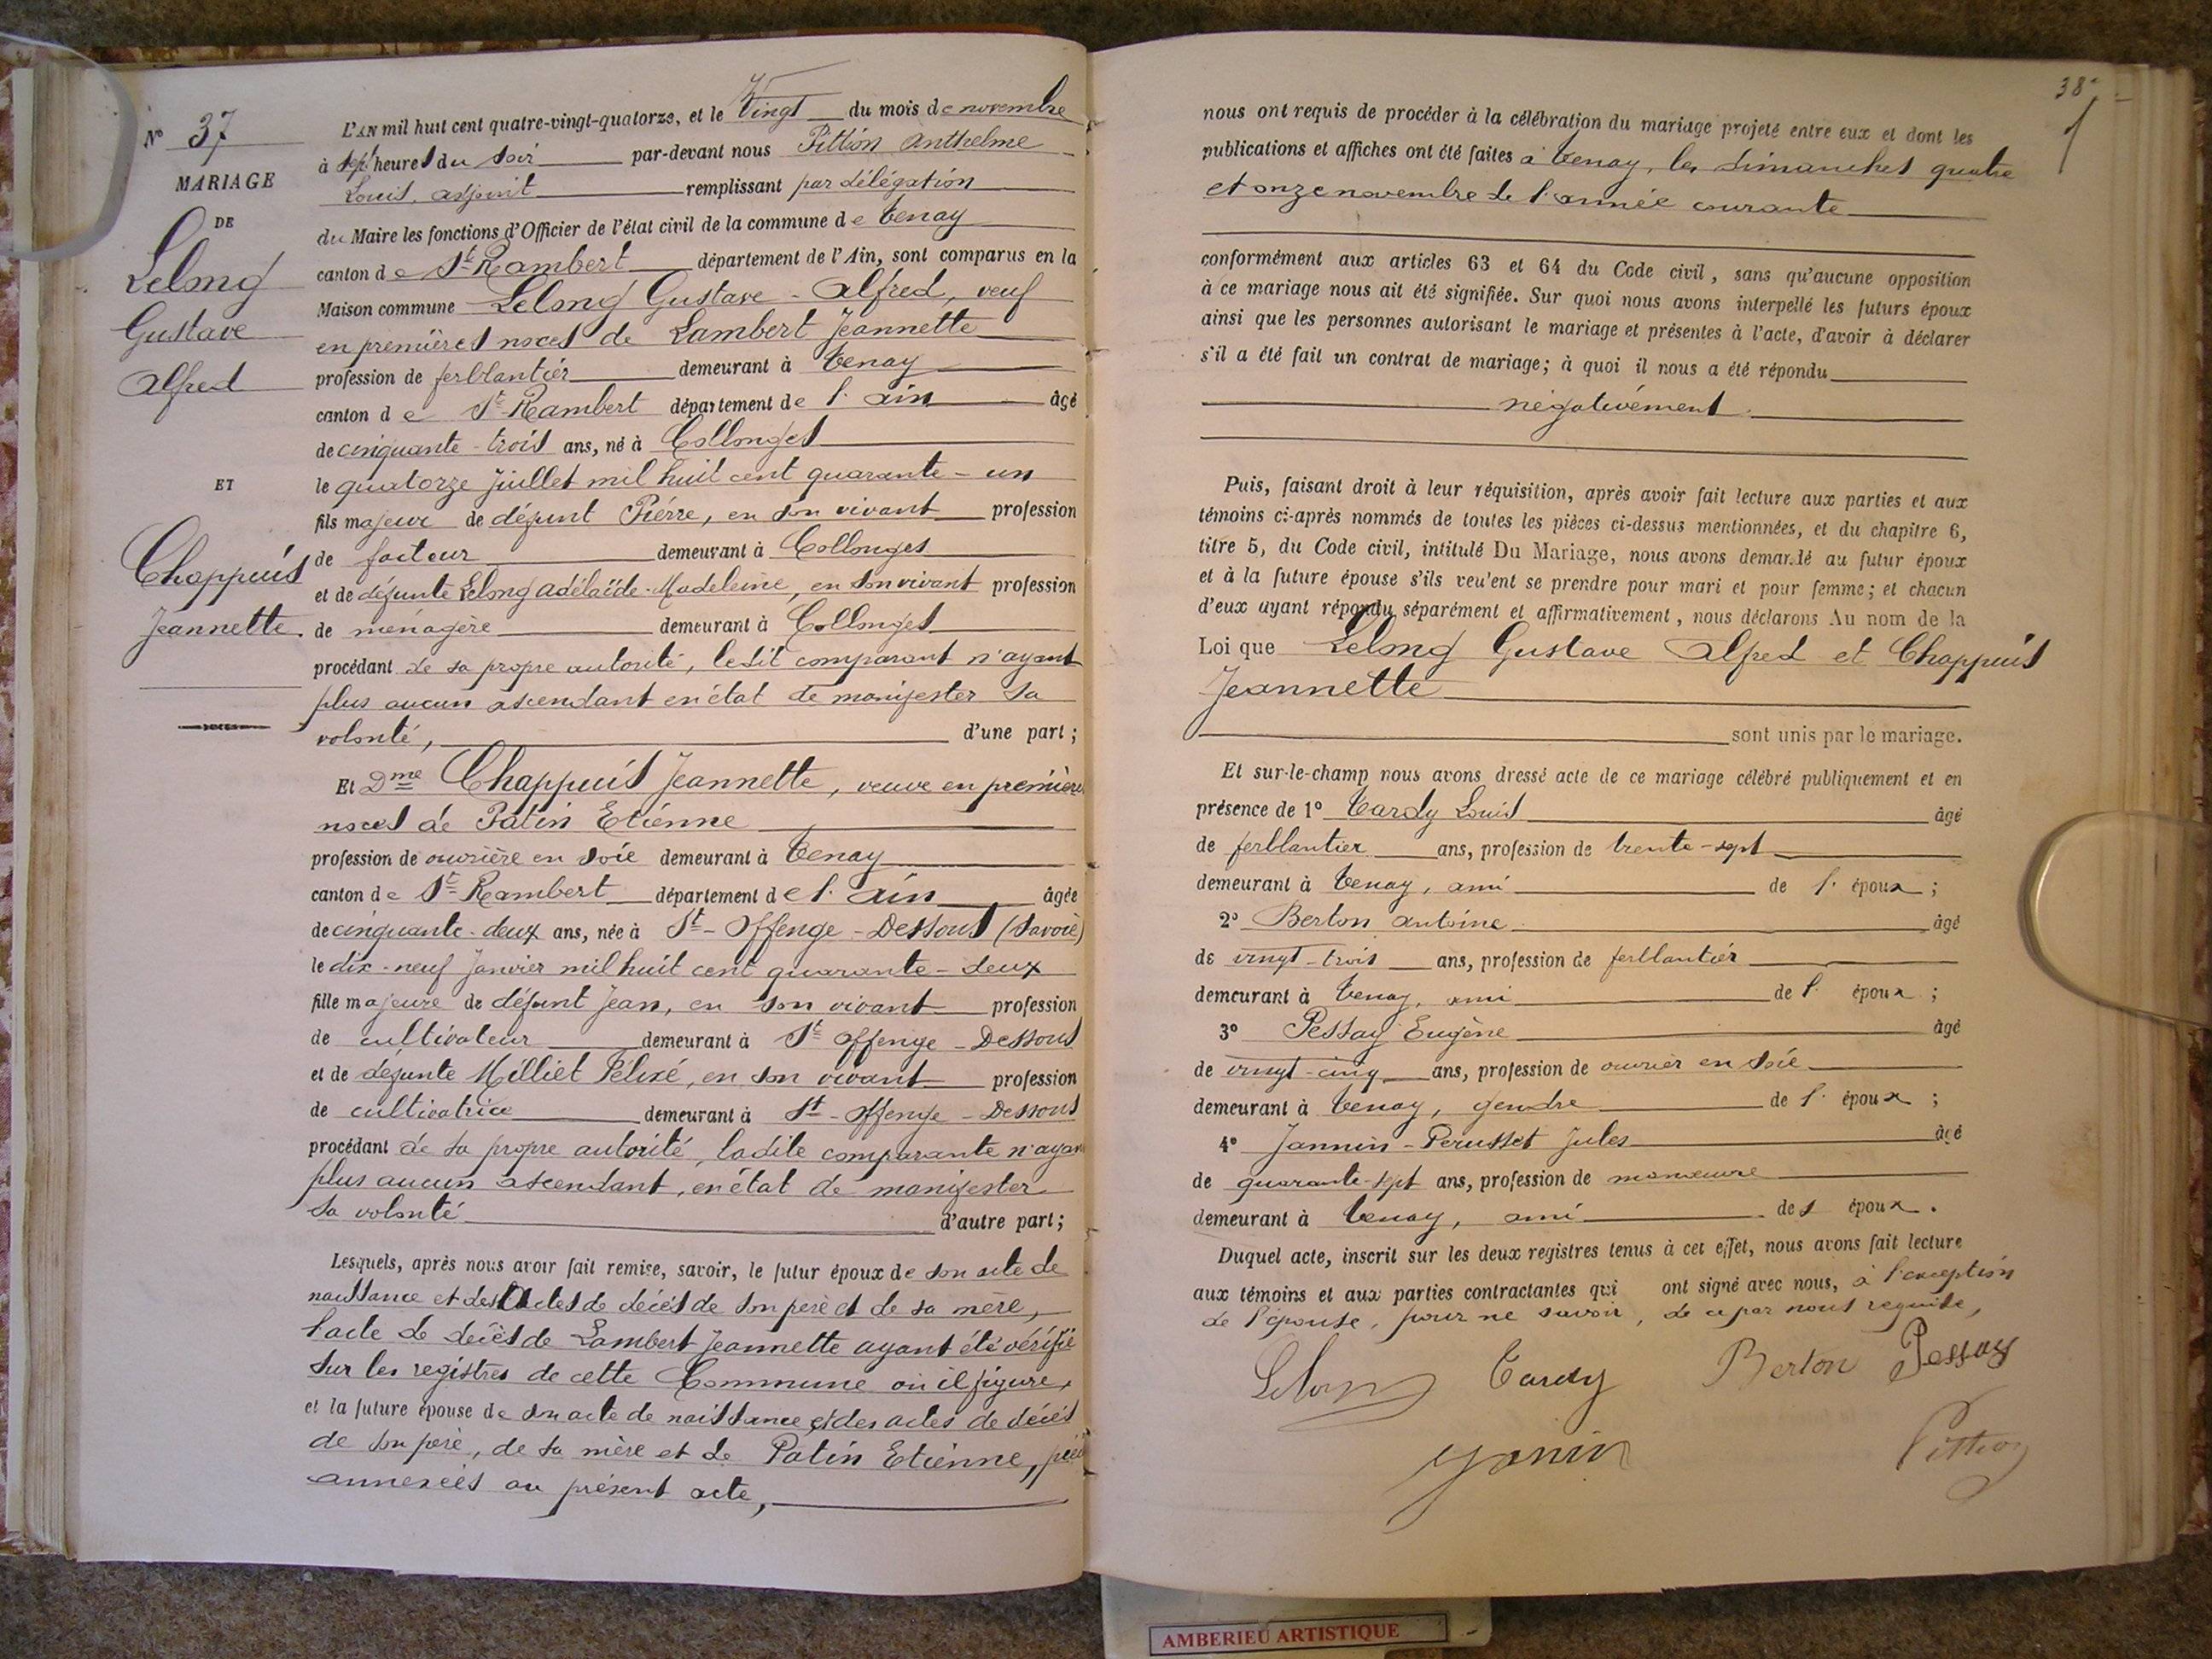 N° 37
MARIAGE
DE
Lelong
Gustave
Alfred
ET
Chappuis
Jeannette.
L'AN mil huit cent quatre-vingt-quatorze, et le Vingt du mois de novembre
à sept heures du soir par-devant nous Pittion Anthelme
Louis, adjoint remplissant par délégation
du Maire les fonctions d'Officier de l'état civil de la commune de Tenay
canton de St Rambert département de l'Ain, sont comparus en la
Maison commune Lelong Gustave - Alfred, veuf
en premières noces de Lambert Jeannette
profession de ferblantier demeurant à Tenay
canton de St Rambert département de l'Ain âgé
de cinquante - trois ans, né à Collonges
le quatorze Juillet mil huit cent quarante - un
fils majeur de défunt Pierre, en son vivant profession
de facteur demeurant à Collonges
et de défunte Lelong Adélaïde-Madeleine, en son vivant profession
de ménagère demeurant à Collonges
procédant de sa propre autorité, ledit comparant n'ayant
plus aucun ascendant en état de manifester sa
volonté, d'une part ;
Et Dme Chappuis Jeannette, veuve en premières
noces de Patin Etienne
profession de ouvrière en soie demeurant à Tenay
canton de St Rambert département de l'Ain âgée
de cinquante - deux ans, née à St - Offenge - Dessous (Savoie)
le dix - neuf Janvier mil huit cent quarante - deux
fille majeure de défunt Jean, en son vivant profession
de cultivateur demeurant à St Offenge - Dessous
et de défunte Milliet Félixé, en son vivant profession
de cultivatrice demeurant à St - Offenge - Dessous
procédant de sa propre autorité, ladite comparante n'ayant
plus aucun ascendant, en état de manifester
sa volonté d'autre part ;
Lesquels, après nous avoir fait remise, savoir, le futur époux de son acte de
naissance et des actes de décès de son père et de sa mère,
l'acte de décès de Lambert Jeannette ayant été vérifié
sur les registres de cette Commune où il figure,
et la future épouse de son acte de naissance et des actes de décès
de son père, de sa mère et de Patin Etienne,
annexées au présent acte,
38
nous ont requis de procéder à la célébration du mariage projeté entre eux et dont les
publications et affiches ont été faites à Tenay, les dimanches quatre
et onze novembre de l'année courante
conformément aux articles 63 et 64 du Code civil, sans qu'aucune opposition
à ce mariage nous ait été signifiée. Sur quoi nous avons interpellé les futurs époux
ainsi que les personnes autorisant le mariage et présentes à l'acte, d'avoir à déclarer
s'il a été fait un contrat de mariage ; à quoi il nous a été répondu
négativement.
Puis, faisant droit à leur réquisition, après avoir fait lecture aux parties et aux
témoins ci-après nommés de toutes les pièces ci-dessus mentionnées, et du chapitre 6,
titre 5, du Code civil, intitulé Du Mariage, nous avons demandé au futur époux
et à la future épouse s'ils veu'ent se prendre pour mari et pour femme ; et chacun
d'eux ayant répondu séparément et affirmativement, nous déclarons Au nom de la
Loi que Lelong Gustave Alfred et Chappuis
Jeannette
sont unis par le mariage.
Et sur-le-champ nous avons dressé acte de ce mariage célébré publiquement et en
présence de 1° Tardy Louis âgé
de ferblantier ans, profession de trente-sept
demeurant à Tenay, ami de l'époux ;
2° Berton Antoine âgé
de vingt-trois ans, profession de ferblantier
demeurant à Tenay, ami de l'époux ;
3° Pessay Eugène âgé
de vingt-cinq ans, profession de ouvrier en soie
demeurant à Tenay, gendre de l'époux ;
4° Jannin - Perusset Jules âgé
de quarante-sept ans, profession de manœuvre
demeurant à Tenay, ami des époux.
Duquel acte, inscrit sur les deux registres tenus à cet effet, nous avons fait lecture
aux témoins et aux parties contractantes qui ont signé avec nous, à l'exception
de l'épouse, pour ne savoir, de ce par nous requise,
Lelong Tardy Berton Pessay
Janin Pittion
AMBERIEU ARTISTIQUE